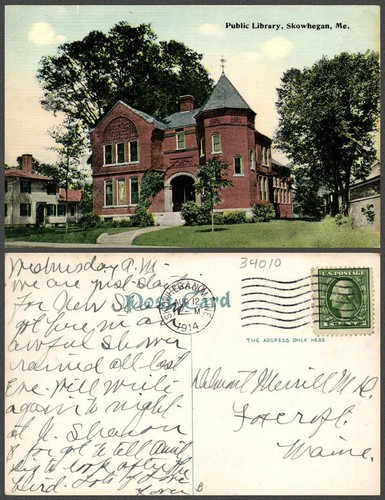 Public Library, Skowhegan, Me.
Wednesday A.M.
We are just
For New
Post card
got here in a
awful shower
rained all last
Eve. Will write
again to night
at N. Sharon
I forgot to tell Aunt
to look after the
bird. Lots of Love
SKOWHEGAN, MAINE
AUG 12
M
1914
39010
U.S. POSTAGE
1 CENT 1
THE ADDRESS ONLY HERE
Delmont Merrill
Foxcroft,
Maine.
B